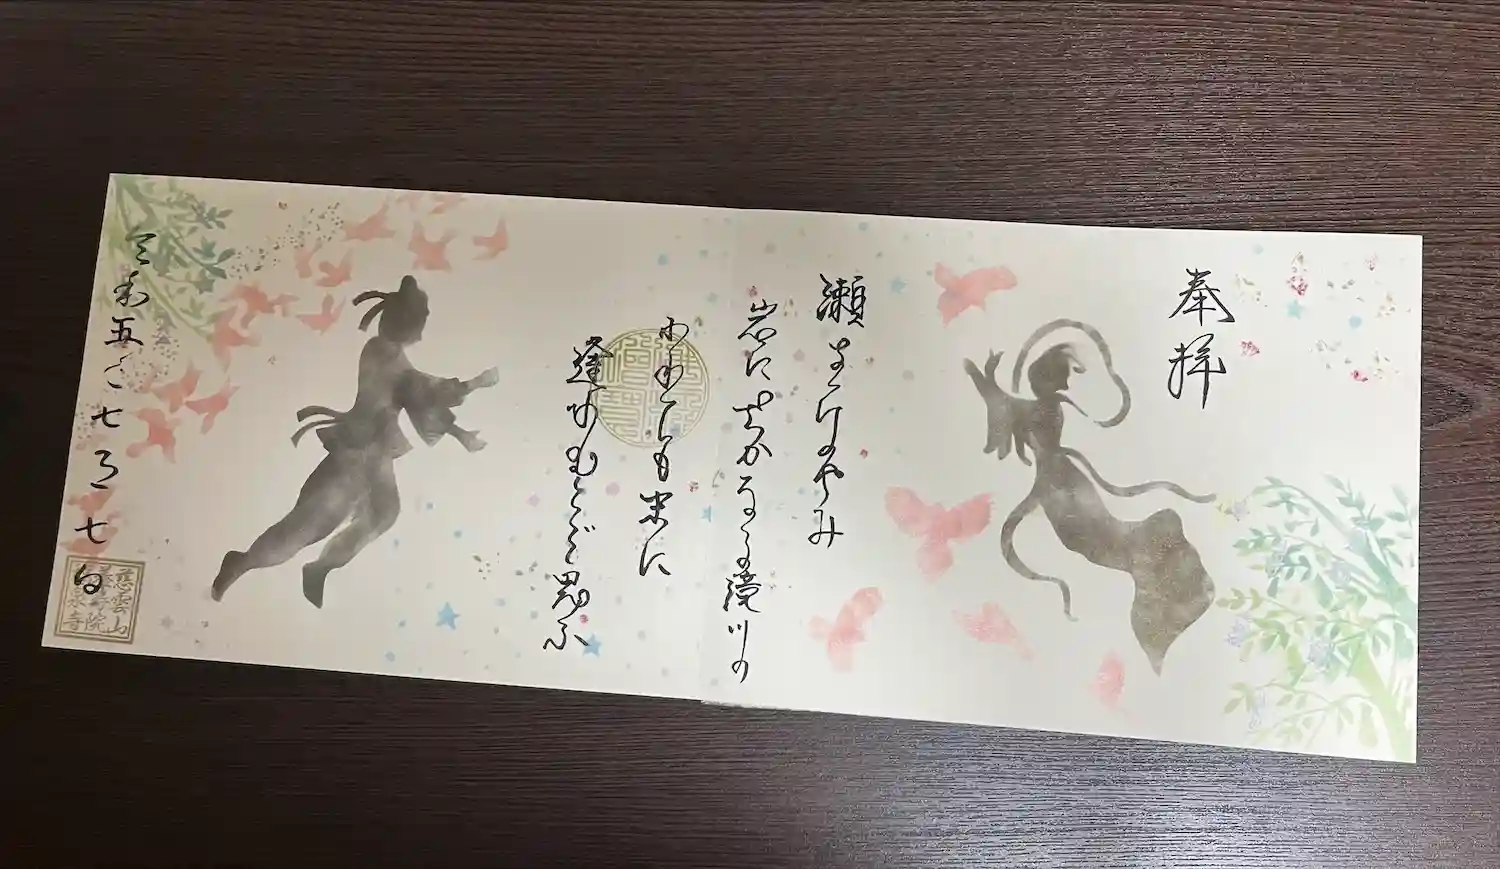 奉拝
瀬をはやみ
岩にせかるる滝川の
われても末に
逢わむとぞ思ふ
令和五年七月七日
慈雲山